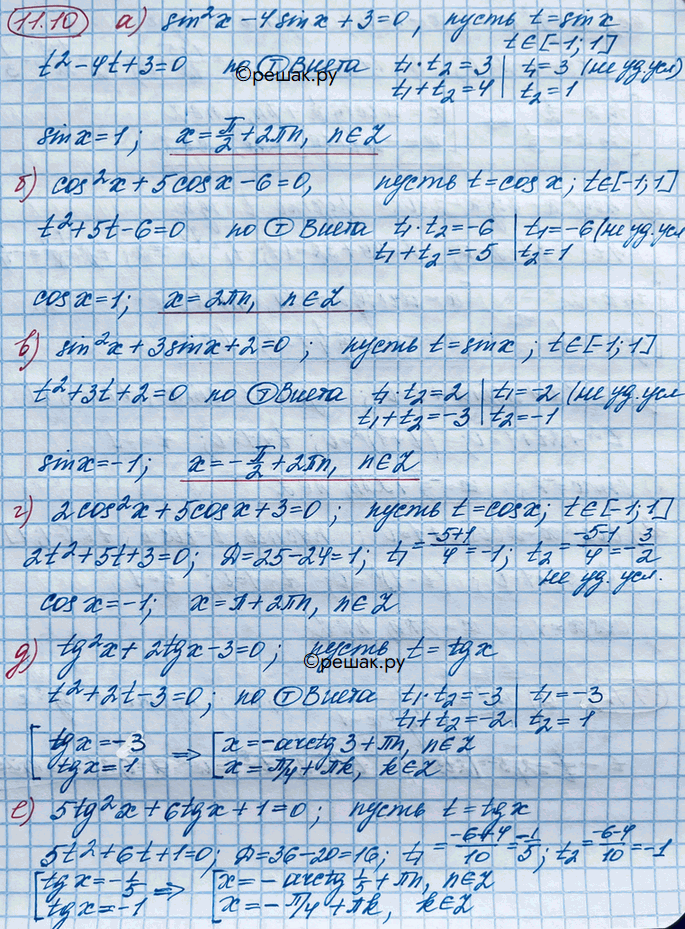 11.10 а) sin²x - 4sinx + 3 = 0, пусть t = sinx
t ∈ [-1; 1]
t² - 4t + 3 = 0 по Т Виета t₁ · t₂ = 3 | t₁ = 3 (не уд. усл)
©решак.ру t₁ + t₂ = 4 | t₂ = 1
sinx = 1; x = π/2 + 2πn, n ∈ Z
б) cos²x + 5cosx - 6 = 0, пусть t = cosx; t ∈ [-1; 1]
t² + 5t - 6 = 0 по Т Виета t₁ · t₂ = -6 | t₁ = -6 (не уд. усл
t₁ + t₂ = -5 | t₂ = 1
cosx = 1; x = 2πn, n ∈ Z
в) sin²x + 3sinx + 2 = 0; пусть t = sinx; t ∈ [-1; 1]
t² + 3t + 2 = 0 по Т Виета t₁ · t₂ = 2 | t₁ = -2 (не уд. усл
t₁ + t₂ = -3 | t₂ = -1
sinx = -1; x = -π/2 + 2πn, n ∈ Z
г) 2cos²x + 5cosx + 3 = 0; пусть t = cosx; t ∈ [-1; 1]
2t² + 5t + 3 = 0; Д = 25 - 24 = 1; t₁ = (-5+1)/4 = -1; t₂ = (-5-1)/4 = -3/2
не уд. усл.
cosx = -1; x = π + 2πn, n ∈ Z
д) tg²x + 2tgx - 3 = 0; пусть t = tgx
©решак.ру
t² + 2t - 3 = 0; по Т Виета t₁ · t₂ = -3 | t₁ = -3
t₁ + t₂ = -2 | t₂ = 1
[ tgx = -3 ⇒ [ x = -arctg3 + πn, n ∈ Z
tgx = 1 x = π/4 + πk, k ∈ Z
е) 5tg²x + 6tgx + 1 = 0; пусть t = tgx
5t² + 6t + 1 = 0; Д = 36 - 20 = 16; t₁ = (-6+4)/10 = -1/5; t₂ = (-6-4)/10 = -1
[ tgx = -1/5 ⇒ [ x = -arctg 1/5 + πn, n ∈ Z
tgx = -1 x = -π/4 + πk, k ∈ Z